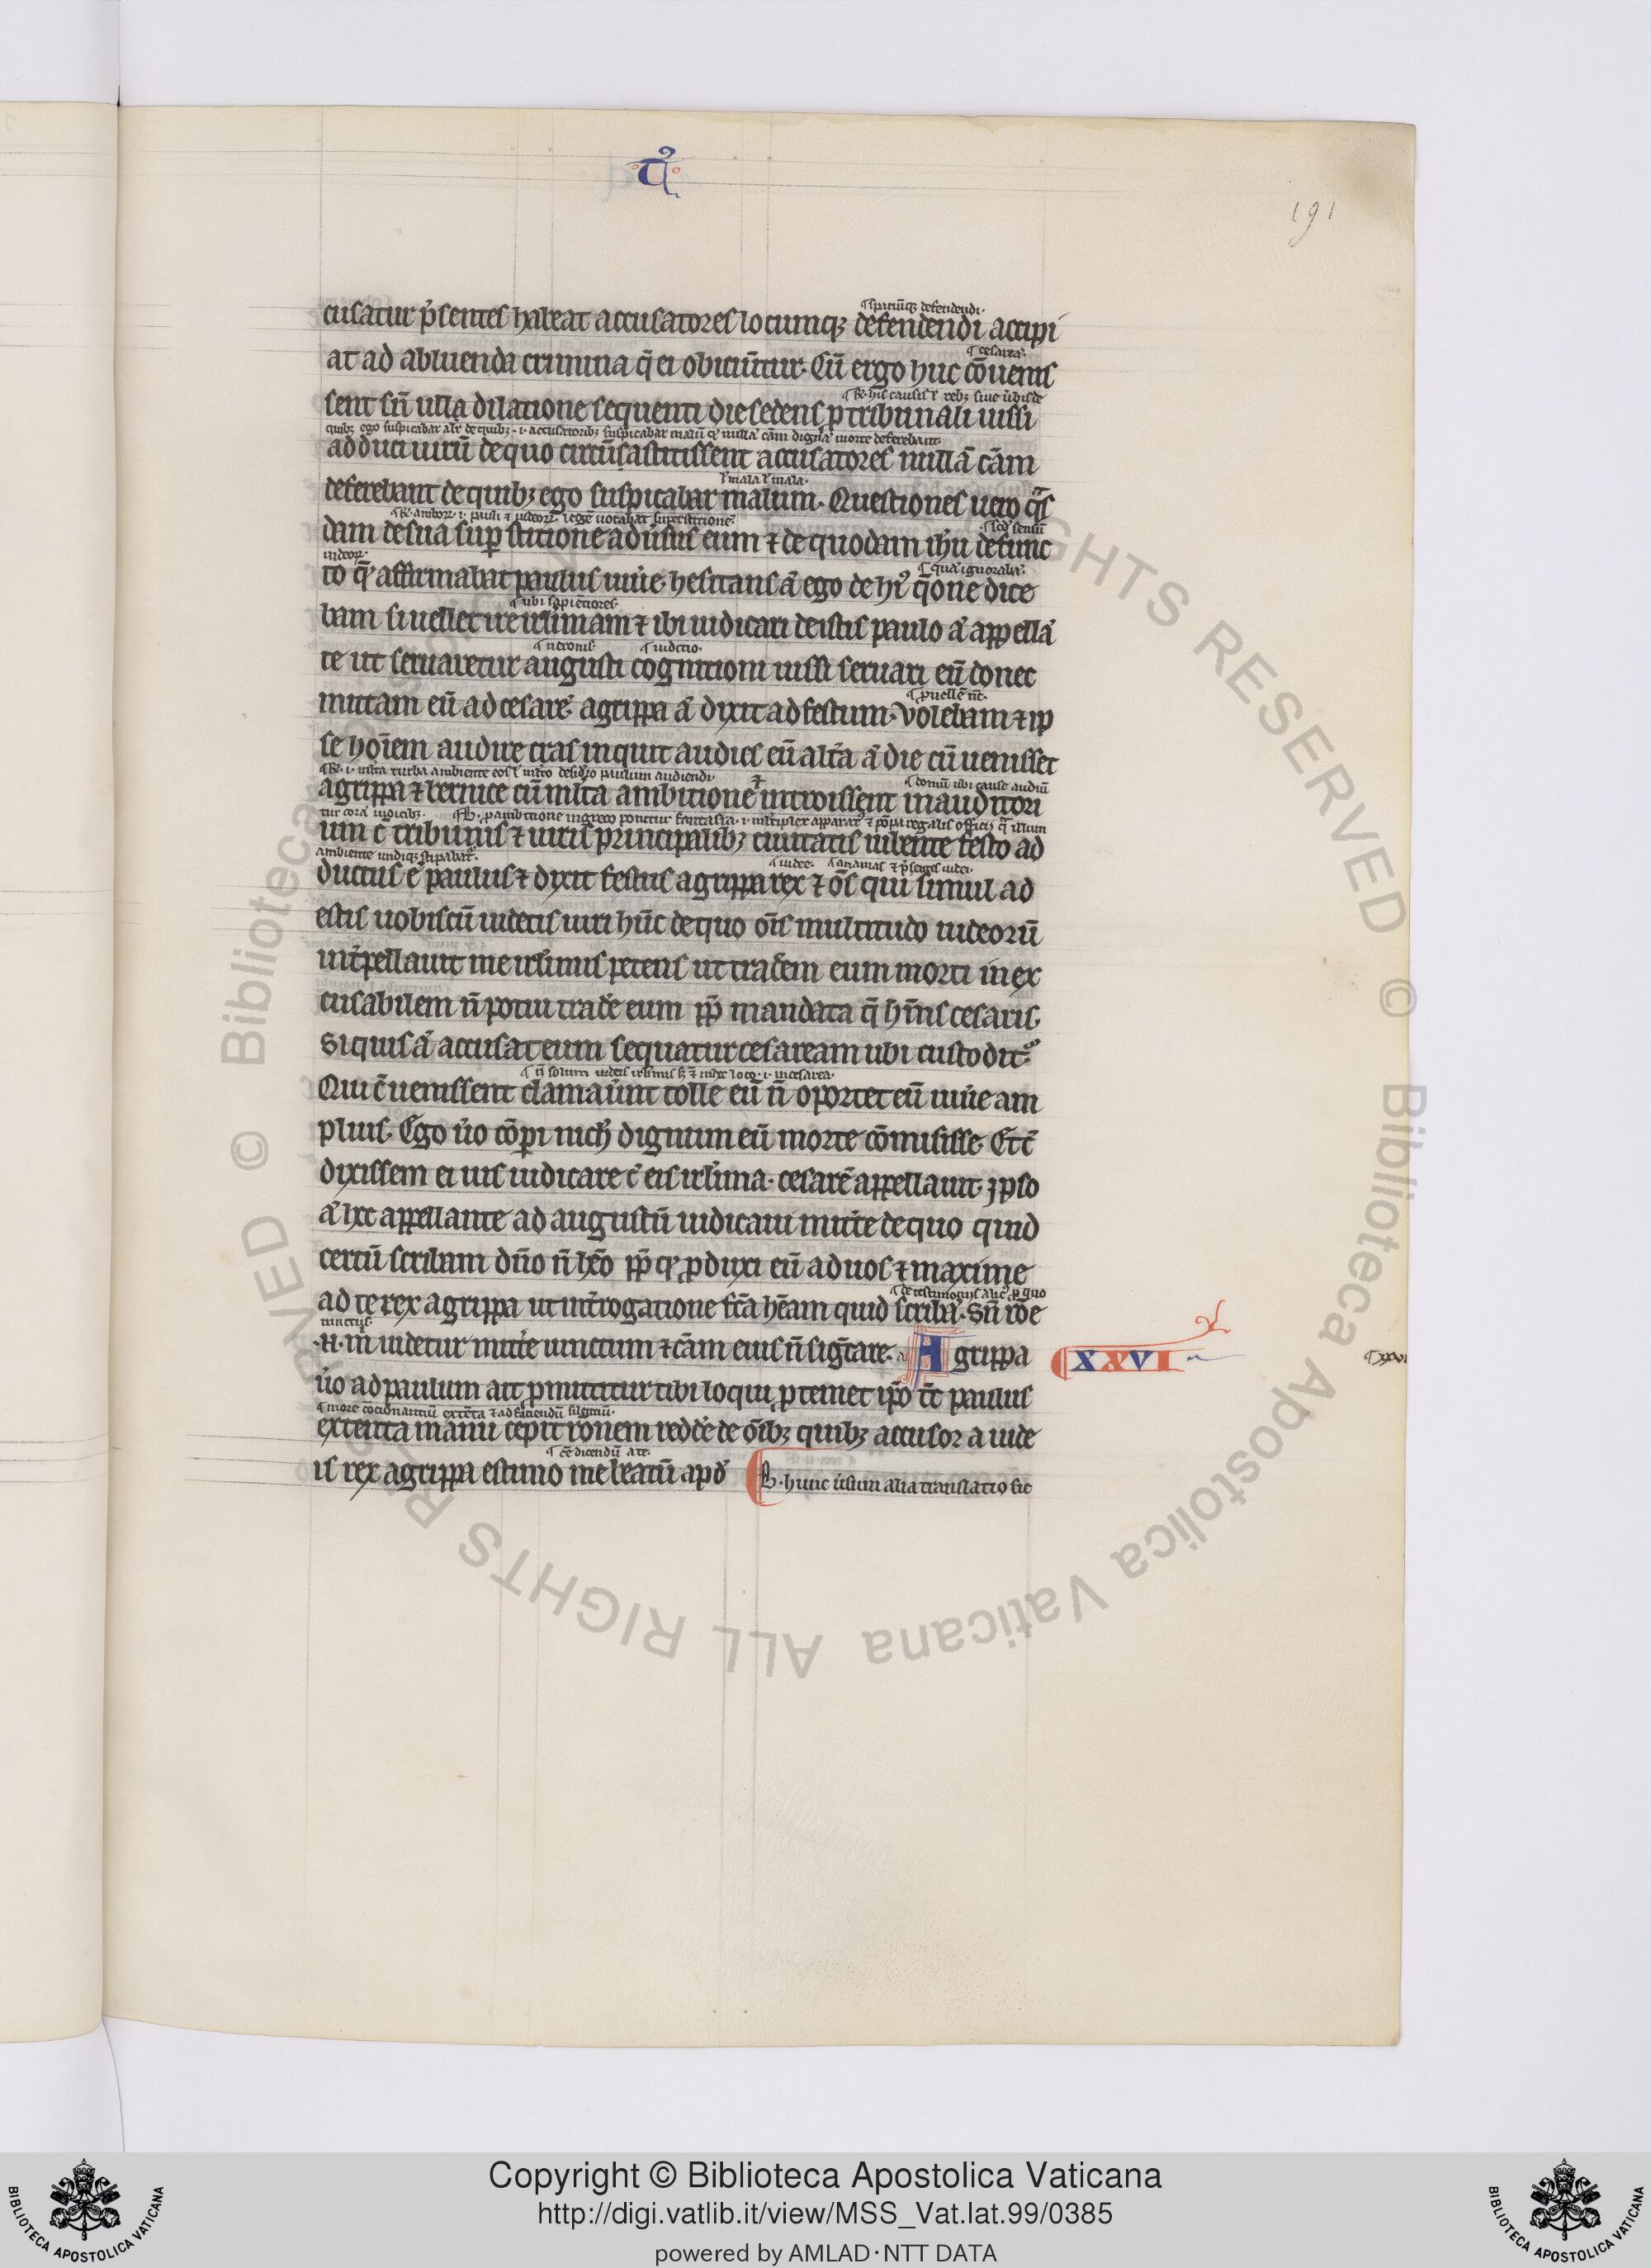 191
¶ spaciu᷑q; defendendi.
cusatur p̓sentes habeat accusatores locumq; defendendi accipi
¶ cesarea᷑.
at ad abluenda crimina q̄ ei obiciūtur. Cū ergo huc cōuenis
sent sn̄ ulla dilatione sequenti die sedens p̱ tribunali iussi
quib; ego suspicabar
adduci uirū de quo circūsastitissent accusatores nullā cām
l̓ mala l̓ mala.
deferebant de quib; ego suspicabar malum. Questiones uero q̄s
dam de sua sup̱stitione adūsus eum ⁊ de quodam ihū defunc
iudeoꝝ.
¶ qua᷑ ignoraba᷑.
to q̄ affirmabat paulus uiue̓. hesitans a᷑ ego de hi᷑ q̄one dice
¶ ubi sapie᷑ciores.
bam si uellet ire irl̓imam ⁊ ibi iudicari de istis paulo a᷑ appella᷑
¶ neronis. ¶ iudicio.
te ut seruaretur augusti cognitioni iussi seruari eū donec
mittam eū ad cesare᷑. agrippa a᷑ dixit ad festum. Volebam ⁊ ip
se hoīem audire cras inquit audies eū alt̓a a᷑ die cū uenisset
agrippa ⁊ bernice cū ml̓ta ambitione ⁊ introissent in auditori
um c̄ tribunis ⁊ uiris principalib; ciuitatis iubente festo ad
ambiente undiq; stipabat᷑.
ductus ē paulus ⁊ dixit festus agrippa rex ⁊ oē̄s qui simul ad
estis uobiscū uidetis uiri hūc de quo oīs multitudo iudeorū
int̓pellauit me irl̓imis petens ut trad̓em eum morti inex
cusabilem n̄ potui trad̓e eum pp̄ mandata q̄ h̓m̄s cesaris.
Si quis a᷑ accusat eum sequatur cesaream ubi custodit᷑.
Qui c̄ uenissent clamau̓unt tolle eū n̄ oportet eū uiu̓e am
plius. Ego u̓o cōpi nich̓ dignum eū morte cōmisisse. Et c̄
dixissem ei uis iudicare c̄ eis irl̓ima. cesarē appellauit. Ipso
a᷑ hec appellante ad augustū iudicaui mitt̓e de quo quid
certū scribam dn̄o n̄ hēo pp̄ q; p̱duxi eū ad uos ⁊ maxime
ad te rex agrippa ut int̓rogatione fc̄a hēam quid scriba᷑. Sn̄ rōe
uinctus.
.n. m̄ uidetur mitt̓e uinctum ⁊ cām eius n̄ sig̓care. Agrippa
XXVI
u̓o ad paulum ait p̱mittitur tibi loqui p̱ temet ip̄o tc̄ paulus
extenta manu cepit rōnem redd̓e de oīb; quib; accusor a iude
¶ cē̄ dicendū a te.
is rex agrippa estimo me beatū apd̓
B. hunc u̓sum alia translatio sic
Copyright © Biblioteca Apostolica Vaticana
http://digi.vatlib.it/view/MSS_Vat.lat.99/0385
powered by AMLAD·NTT DATA
BIBLIOTECA APOSTOLICA VATICANA
BIBLIOTECA APOSTOLICA VATICANA
© Biblioteca Apostolica Vaticana ALL RIGHTS RESERVED